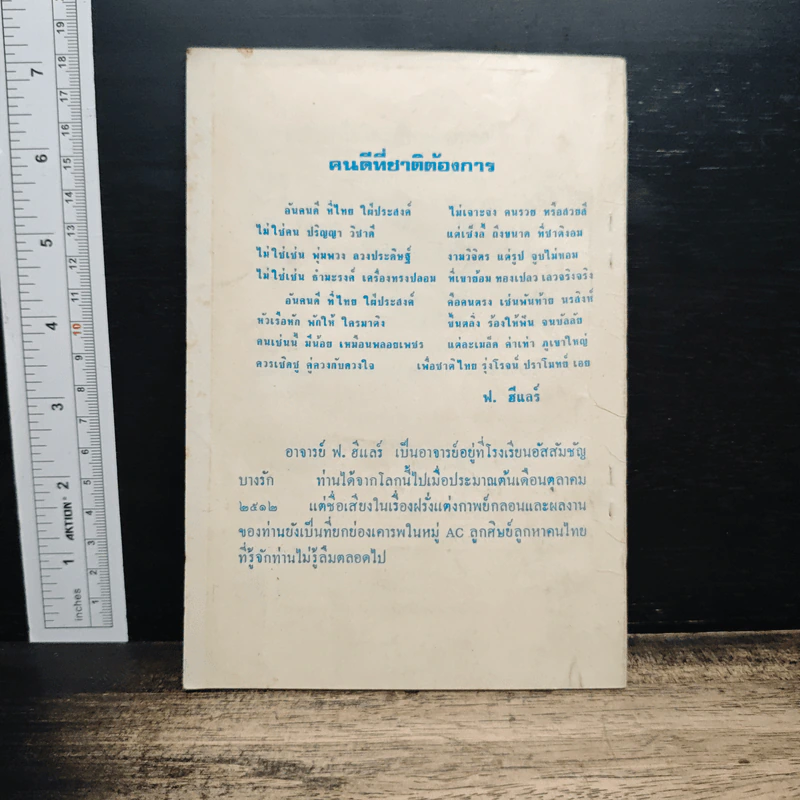 คนดีที่ชาติต้องการ
อันคนดี ที่ไทย ใฝ่ประสงค์ ไม่เจาะจง คนรวย หรือสวยสี
ไม่ใช่คน ปริญญา วิชาดี แต่เซ็งลี้ ถึงขนาด ที่ชาติงอม
ไม่ใช่เช่น พุ่มพวง ลวงประดิษฐ์ งามวิจิตร แต่รูป จูบไม่หอม
ไม่ใช่เช่น ธำมะรงค์ เครื่องทรงปลอม ที่เขาย้อม ทองเปลว เลวจริงจริง
อันคนดี ที่ไทย ใฝ่ประสงค์ คือคนตรง เช่นพันท้าย นรสิงห์
หัวเรือหัก พักให้ ใครมาติง ขืนตลิ่ง ร้องให้ฟัน จนบัลลัย
คนเช่นนี้ มีน้อย เหมือนพลอยเพชร แต่ละเม็ด ค่าเท่า ภูเขาใหญ่
ควรเชิดชู คู่ควงกับดวงใจ เพื่อชาติไทย รุ่งโรจน์ ปราโมทย์ เอย
ฟ. ฮีแลร์
อาจารย์ ฟ. ฮีแลร์ เป็นอาจารย์อยู่ที่โรงเรียนอัสสัมชัญ
บางรัก ท่านได้จากโลกนี้ไปเมื่อประมาณต้นเดือนตุลาคม
๒๕๑๒ แต่ชื่อเสียงในเรื่องฝรั่งแต่งกาพย์กลอนและผลงาน
ของท่านยังเป็นที่ยกย่องเคารพในหมู่ AC ลูกศิษย์ลูกหาคนไทย
ที่รู้จักท่านไม่รู้ลืมตลอดไป
7
6
5
4
3
2
1
inches
AKTION
19
18
17
16
15
14
13
12
11
10
9
8
7
6
5
4
3
2
1